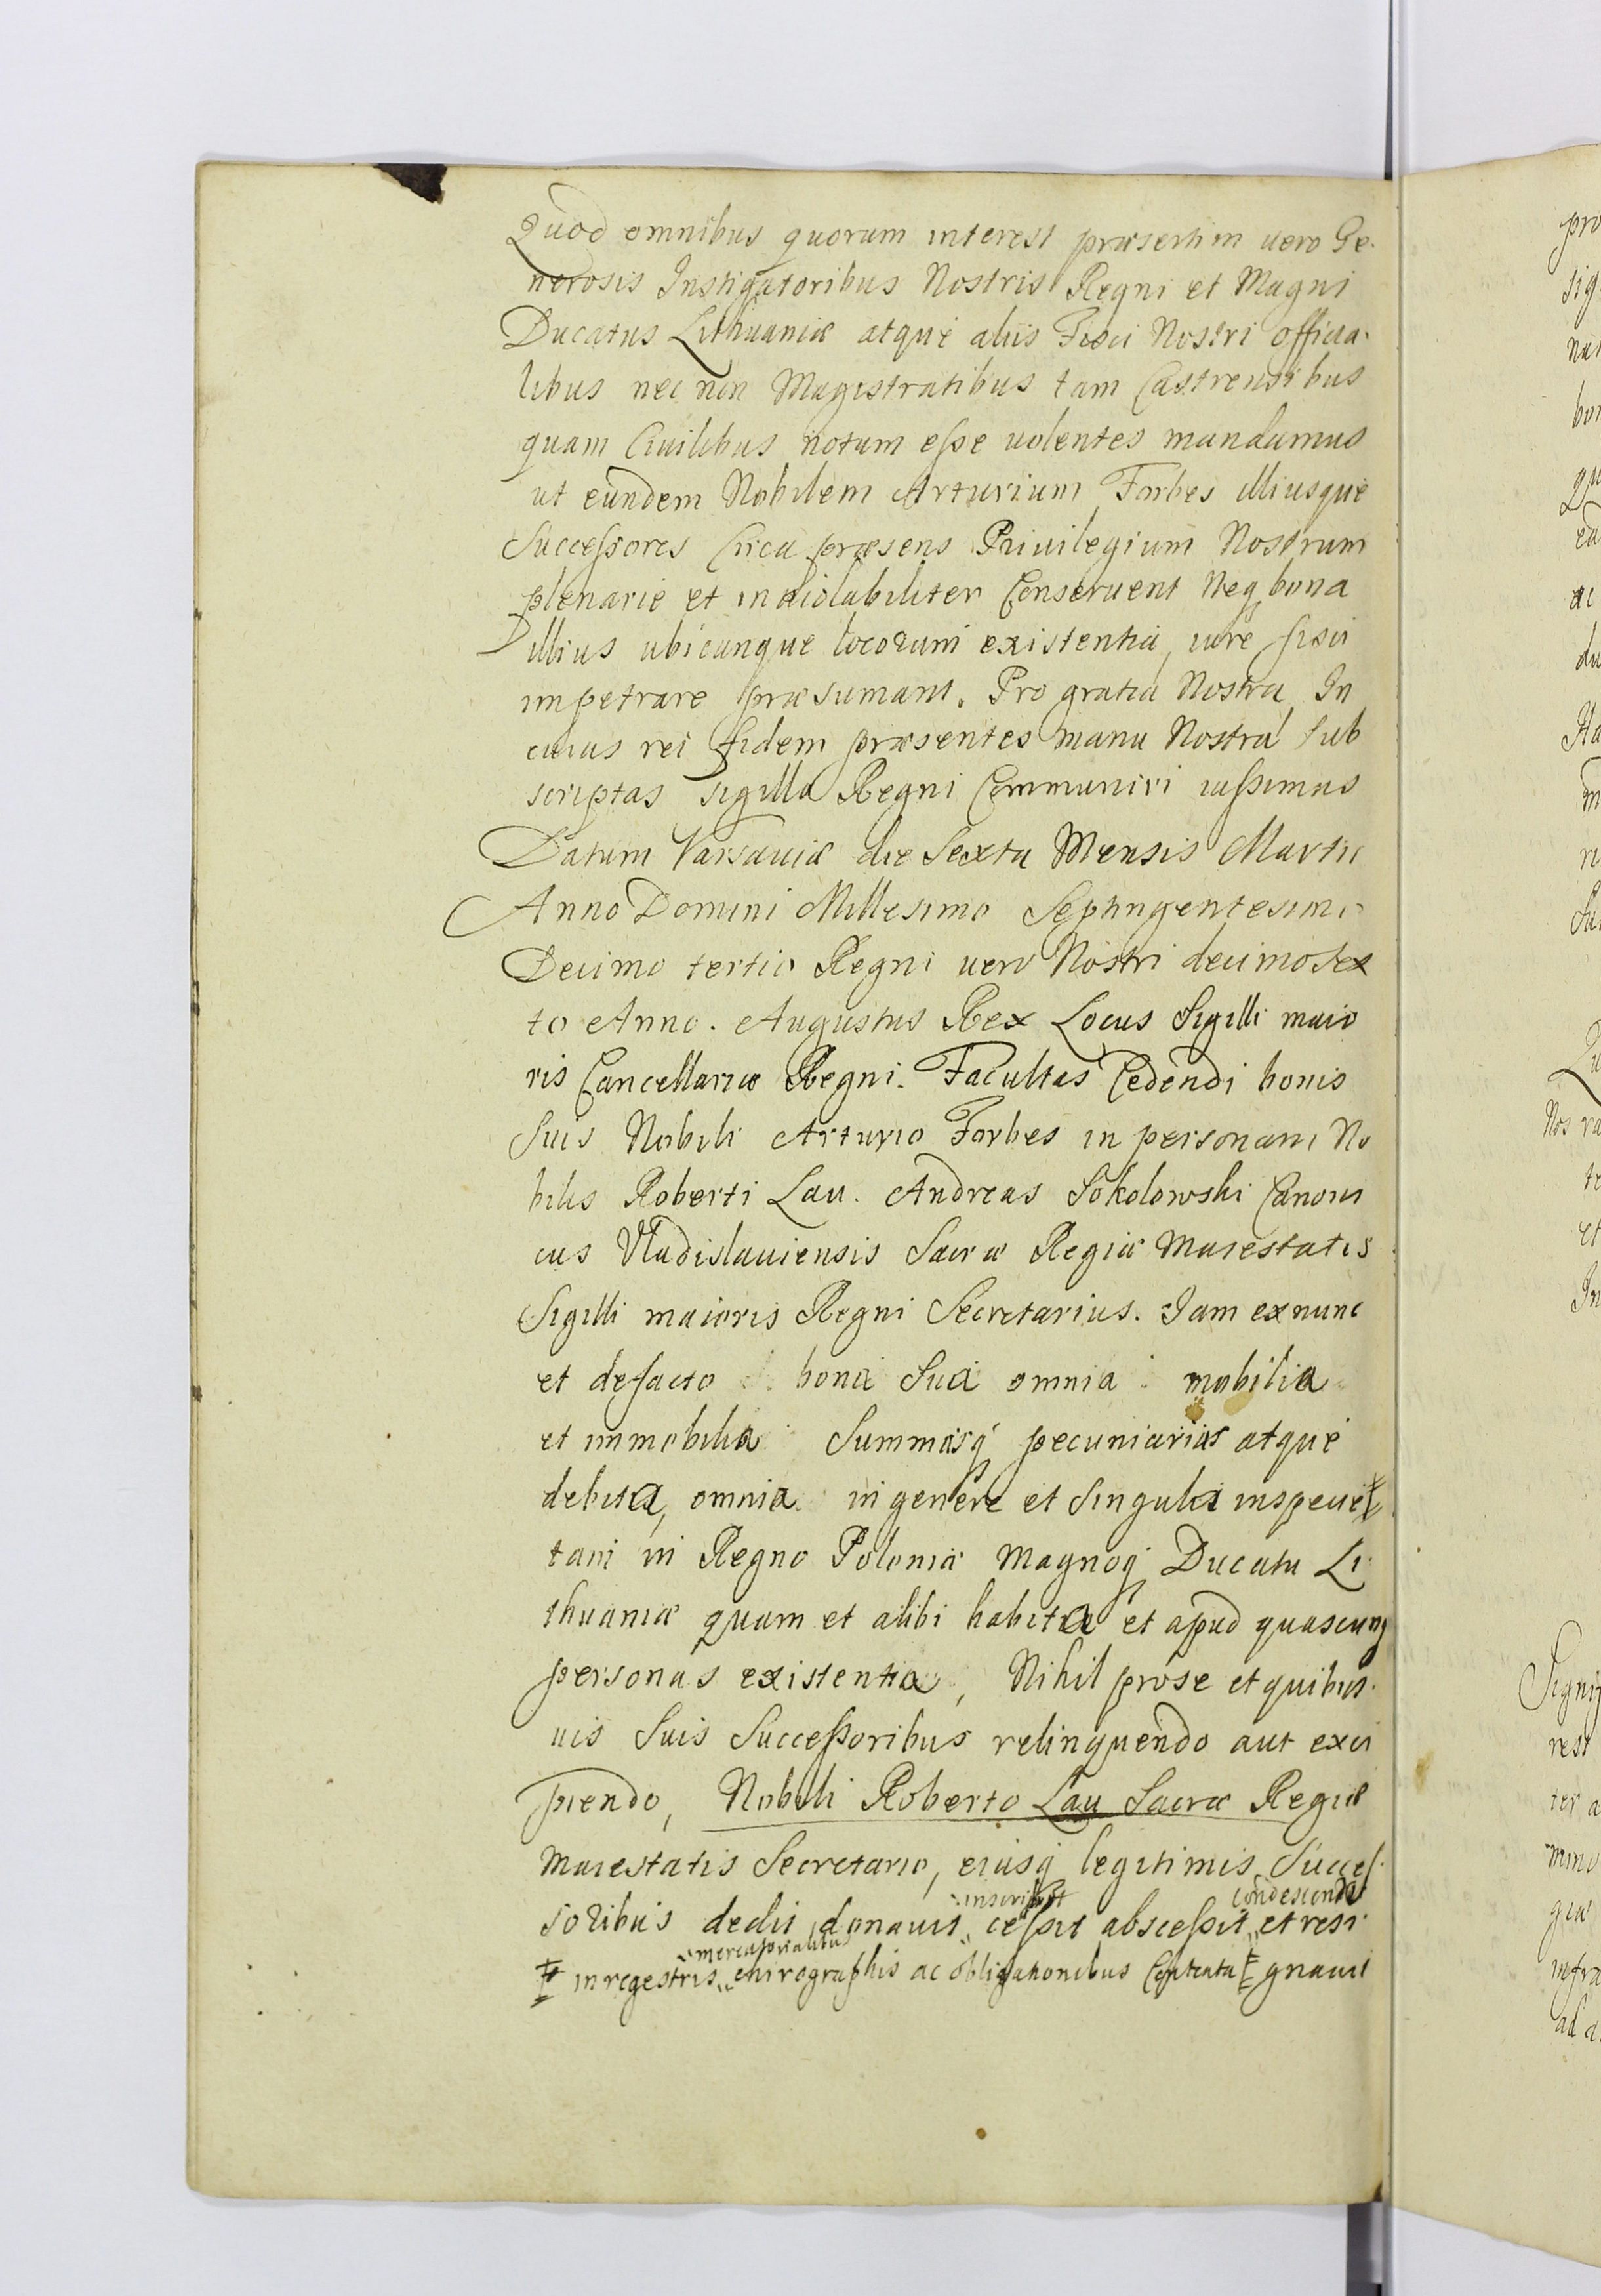 Quod omnibus quorum interest præsertim uero Ge-
nerosis Instigatoribus Nostris Regni et Magni
Ducatus Lithuaniæ atque aliis Fisci Nostri officia-
libus nec non Magistratibus tam Castrensibus
quam Ciuilibus notum esse uolentes mandamus
ut eundem Nobilem Arturium Forbes illiusque
Successores Circa præsens Priuilegium Nostrum
plenarie et inuiolabiliter Conseruent Neq bona
illius ubicunque locorum existentia, iure fisci
impetrare præsumant. Pro gratia Nostra In
cuius rei fidem præsentes manu Nostra Sub
scriptas Sigillo Regni Communiri iussimus
Datum Varsauiæ die Sexta Mensis Martii
Anno Domini Millesimo Septingentesimo
Decimo tertio Regni uero Nostri decimo Sex
to Anno. Augustus Rex Locus Sigilli maio
ris Cancellariæ Regni. Facultas Cedendi bonis
Suis Nobili Arturio Forbes in personam No
bilis Roberti Lau. Andreas Sokolowski Canoni
cus Vladislauiensis Sacræ Regiæ Maiestatis
Sigilli maioris Regni Secretarius. Iam ex nunc
et de facto bona Sua omnia mobilia
et immobilia Summasq pecuniarias atque
debita, omnia in genere et Singula in specie
tam in Regno Poloniæ Magnoq Ducatu Li
thuaniæ quam et alibi habita et apud quascunq
personas existentia, Nihil pro se et quibus-
uis Suis Successoribus relinquendo aut exci
piendo, Nobili Roberto Lau Sacræ Regiæ
Maiestatis Secretario, eiusq legitimis Succes-
inscripsit condescendit
soribus dedit donauit cessit abscessit et resi-
mercatorialibus
in regestris chirographis ac obligationibus Contenta gnauit